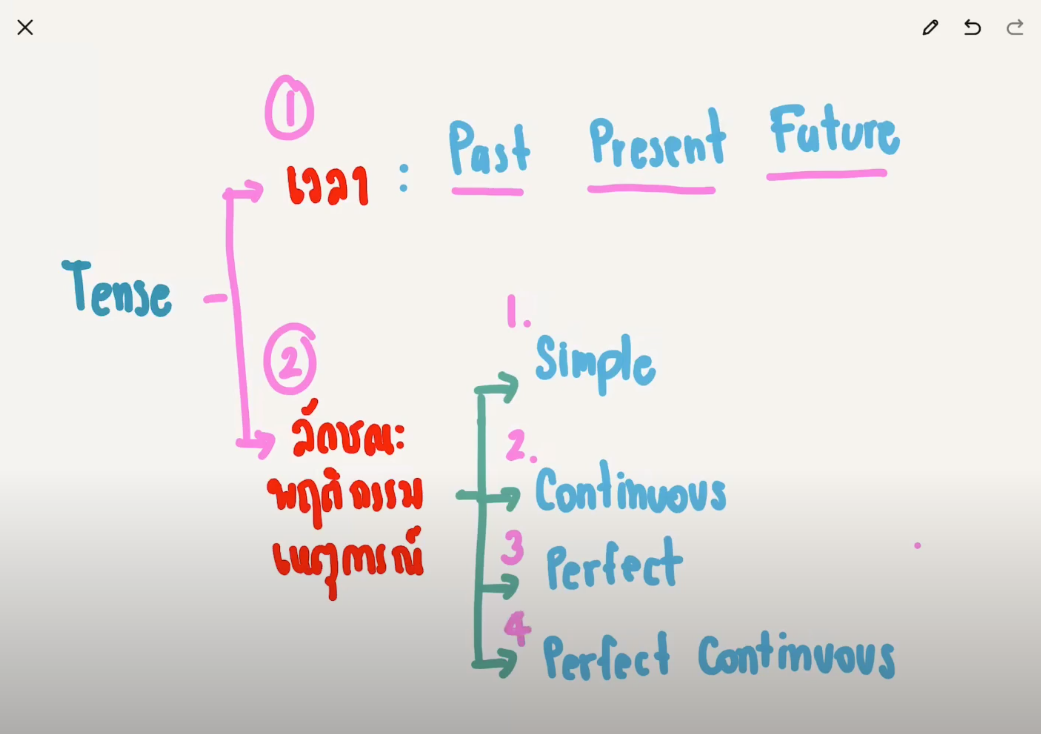 ①
เวลา : Past Present Future
Tense
②
ลักษณะ
พฤติกรรม
เหตุการณ์
1.
Simple
2.
Continuous
3
Perfect
4
Perfect Continuous